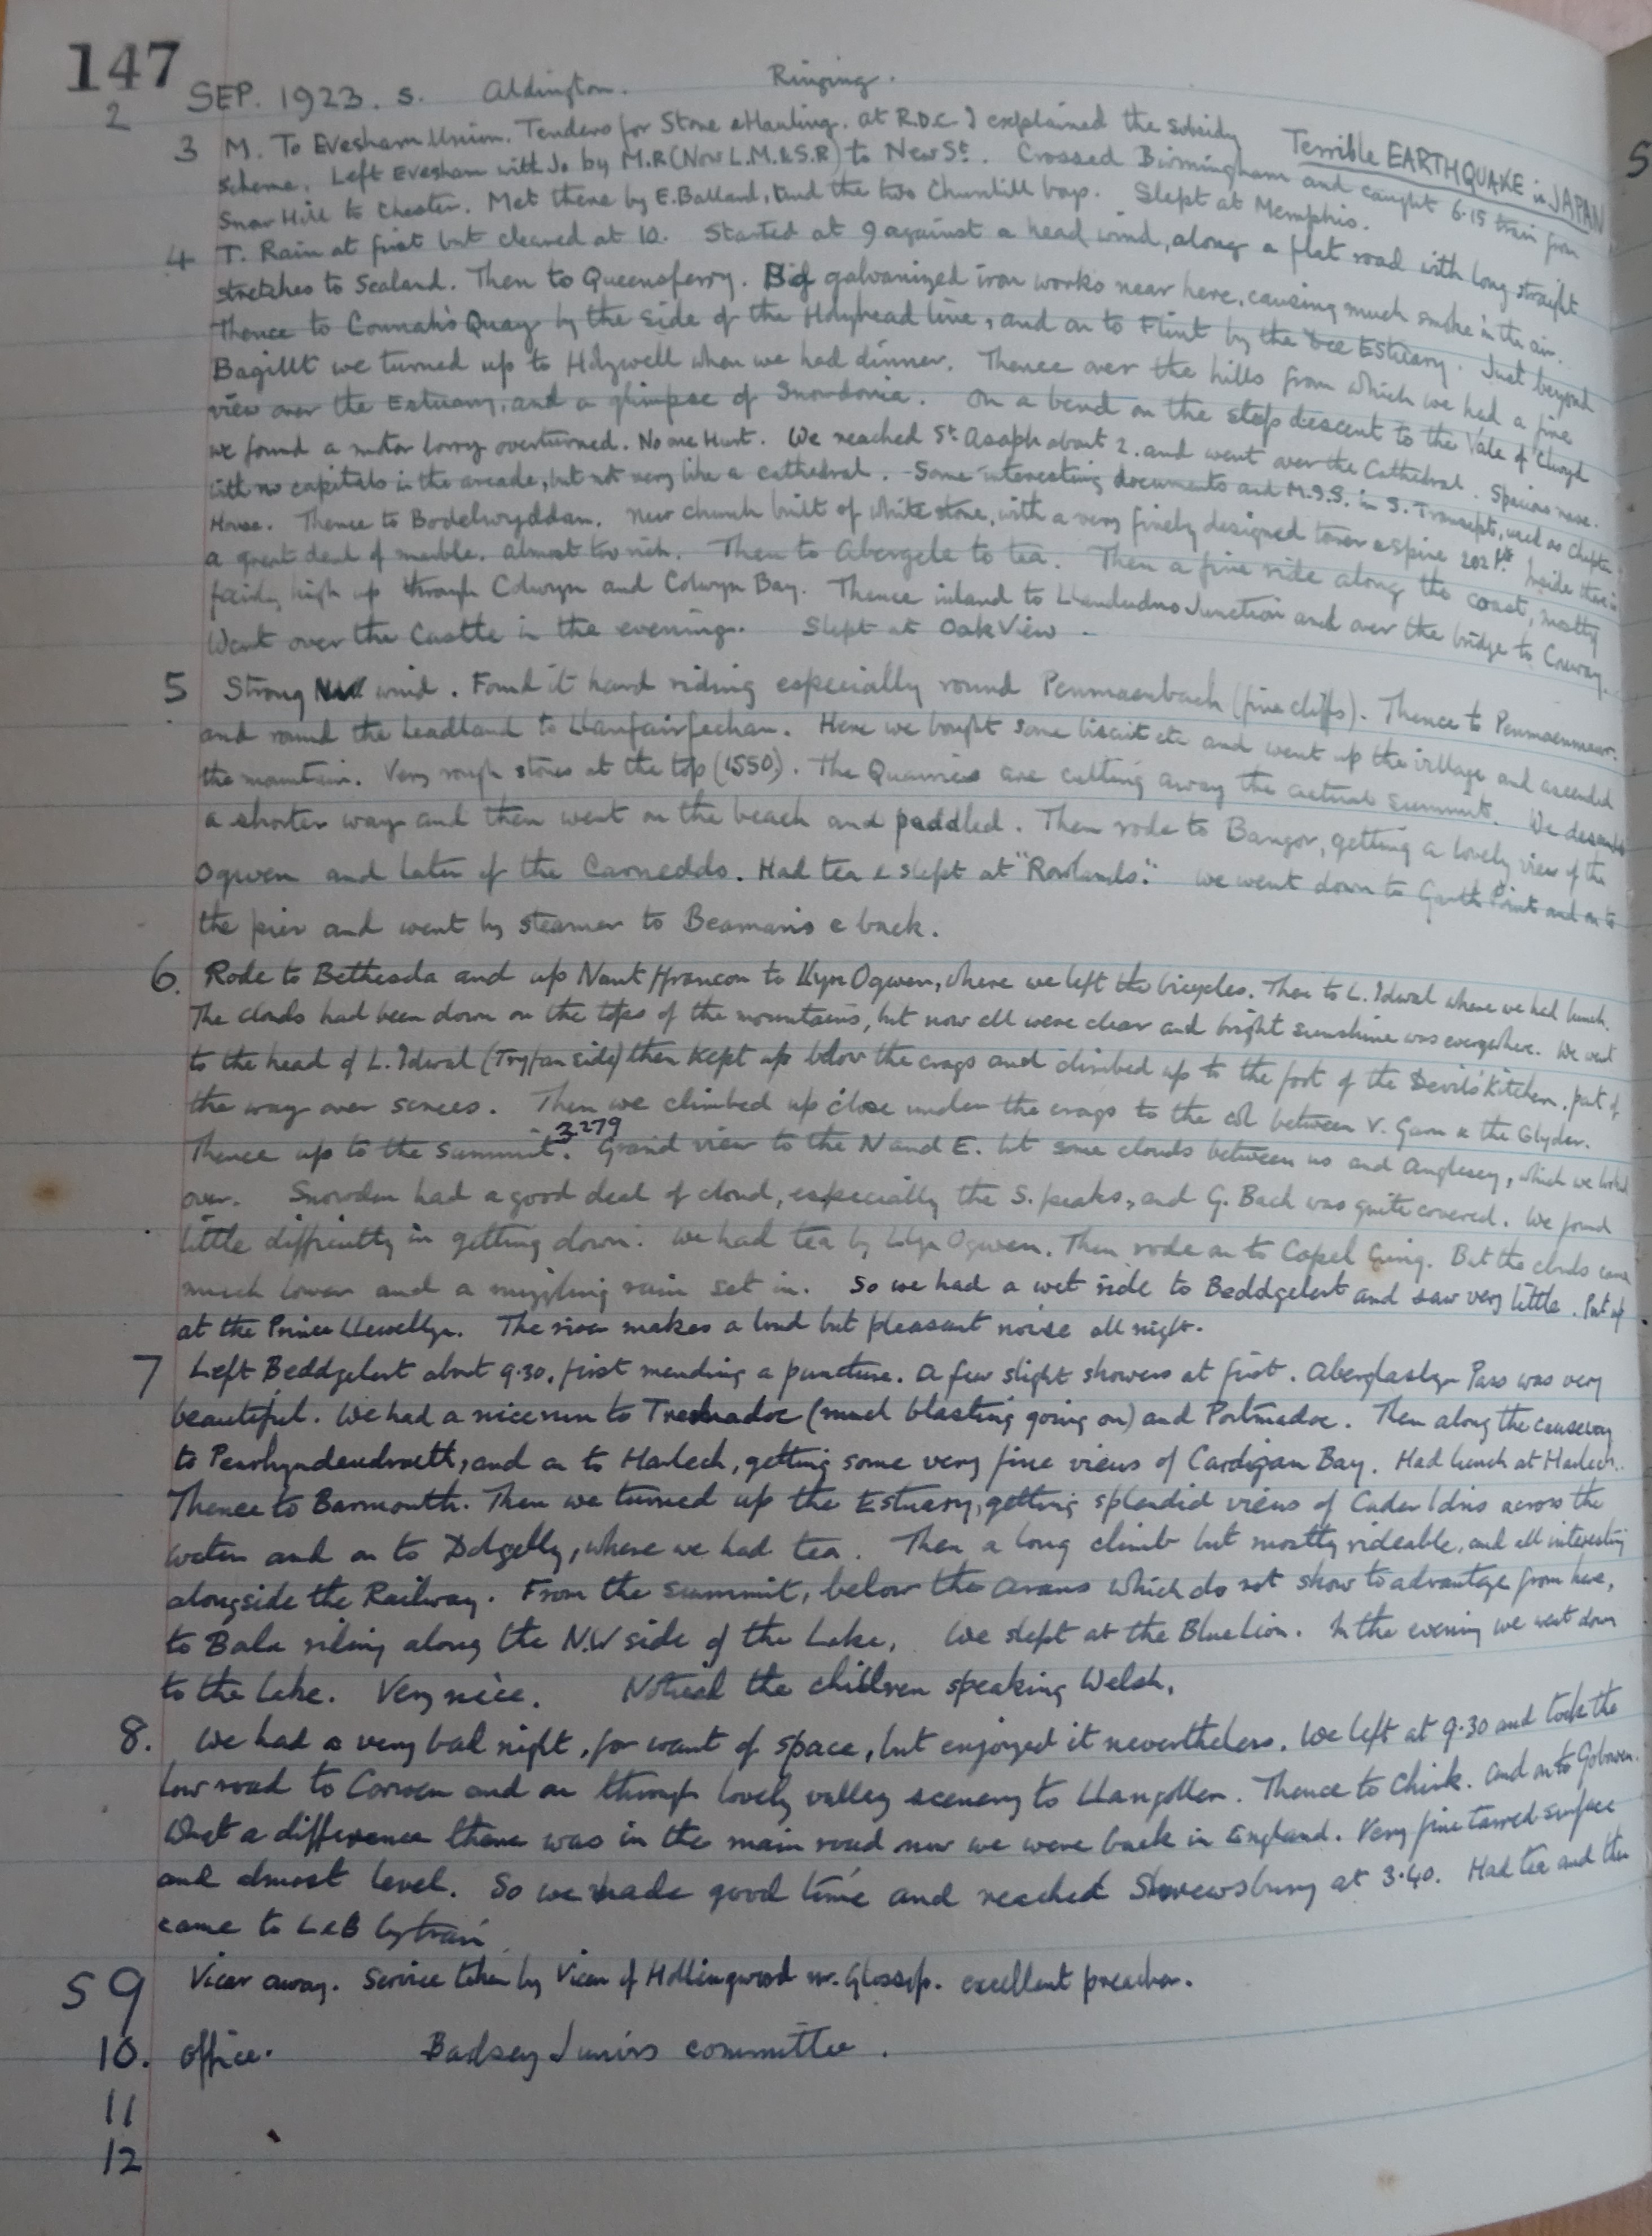 147
2 SEP. 1923. S. Aldington. Ringing.
3 M. To Evesham Union. Tenders for Stone & Hauling. at R.D.C I explained the subsidy Terrible EARTHQUAKE in JAPAN
scheme. Left Evesham with Jo by M.R (Now L.M.&S.R) to New St. Crossed Birmingham and caught 6.15 train from
Snow Hill to Chester. Met there by E. Ballard, and the two Churchill boys. Slept at Memphis.
4 T. Rain at first but cleared at 10. Started at 9 against a head wind, along a flat road with long straight
stretches to Sealand. Then to Queensferry. Big galvanized iron works near here, causing much smoke in the air.
Thence to Connah's Quay by the side of the Holyhead line, and on to Flint by the Dee Estuary. Just beyond
Bagillt we turned up to Holywell when we had dinner. Thence over the hills from which we had a fine
view over the Estuary, and a glimpse of Snowdonia. On a bend on the steep descent to the Vale of Clwyd
we found a motor lorry overturned. No one Hurt. We reached St. Asaph about 2. and went over the Cathedral. Specious nave.
with no capitals in the arcade, but not very like a cathedral. Some interesting documents and M.S.S. in S. Transept, used as Chapter
House. Thence to Bodelwyddan. New church built of white stone, with a very finely designed tower & spire 202 ft. Inside there is
a great deal of marble. Almost too rich. Then to Abergele to tea. Then a fine ride along the coast, mostly
fairly high up through Colwyn and Colwyn Bay. Thence inland to Llandudno Junction and over the bridge to Conway.
Went over the Castle in the evening. Slept at Oak View.
5 Strong NW wind. Found it hard riding especially round Penmaenbach (fine cliffs). Thence to Penmaenmawr.
and round the headland to Llanfairfechan. Here we bought some biscuit etc and went up the village and ascended
the mountain. Very rough stones at the top (1550). The Quarries are cutting away the actual summit. We descended
a shorter way and then went on the beach and paddled. Then rode to Bangor, getting a lovely view of the
Ogwen and later of the Carnedds. Had tea & slept at "Rowlands". We went down to Garth Point and on to
the pier and went by steamer to Beamaris & back.
6. Rode to Bethesda and up Nant Ffrancon to Llyn Ogwen, where we left the bicycles. Then to L. Idwal where we had lunch.
The clouds had been down on the tops of the mountains, but now all were clear and bright sunshine was everywhere. We went
to the head of L. Idwal (Tryfan side) then kept up below the crags and climbed up to the foot of the Devil's Kitchen, part of
the way over screes. Then we climbed up close under the crags to the col between Y. Garn & the Glyder.
Thence up to the summit. 3279 Grand view to the N and E. but some clouds between us and Anglesey, which we looked
over. Snowdon had a good deal of cloud, especially the S. peaks, and G. Bach was quite covered. We found
little difficulty in getting down. We had tea by Llyn Ogwen. Then rode on to Capel Curig. But the clouds came
much lower and a mizzling rain set in. So we had a wet ride to Beddgelert and saw very little. Put up
at the Prince Llewellyn. The river makes a loud but pleasant noise all night.
7 Left Beddgelert about 9.30, first mending a puncture. A few slight showers at first. Aberglaslyn Pass was very
beautiful. We had a nice run to Tremadoc (much blasting going on) and Portmadoc. Then along the causeway
to Penrhyndeudraeth, and on to Harlech, getting some very fine views of Cardigan Bay. Had lunch at Harlech.
Thence to Barmouth. Then we turned up the Estuary, getting splendid views of Cader Idris across the
water and on to Dolgelly, where we had tea. Then a long climb but mostly rideable, and all interesting
alongside the Railway. From the summit, below the Arans which do not show to advantage from here,
to Bala riding along the N.W side of the Lake. We slept at the Blue Lion. In the evening we went down
to the Lake. Very nice. Noticed the children speaking Welsh.
8. We had a very bad night, for want of space, but enjoyed it nevertheless. We left at 9.30 and took the
low road to Corwen and on through lovely valley scenery to Llangollen. Thence to Chirk. and on to Gobowen.
What a difference there was in the main road now we were back in England. Very fine tarred surface
and almost level. So we made good time and reached Shrewsbury at 3.40. Had tea and then
came to L&B by train
S 9 Vicar away. Service taken by Vicar of Hollingwood nr. Glossop. excellent preacher.
10. Office. Badsey Juniors committee.
11
12